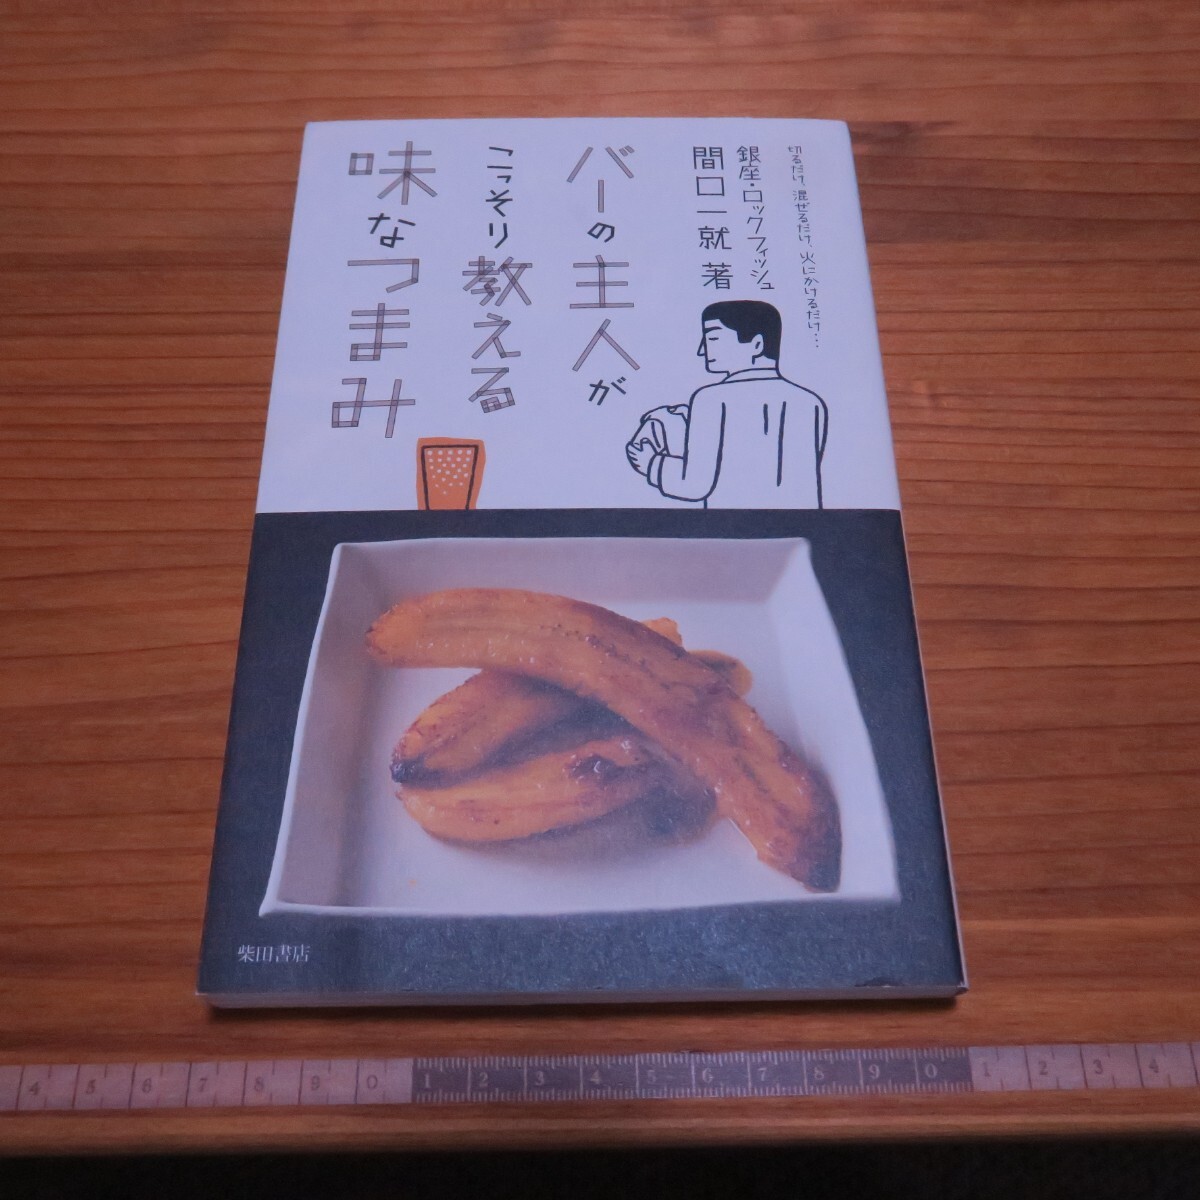 切るだけ、混ぜるだけ、火にかけるだけ…
銀座・ロックフィッシュ
間口一就 著
バーの主人が
こっそり教える
味なつまみ
柴田書店
4 5 6 7 8 9 0 1 2 3 4 5 6 7 8 9 0 1 2 3 4